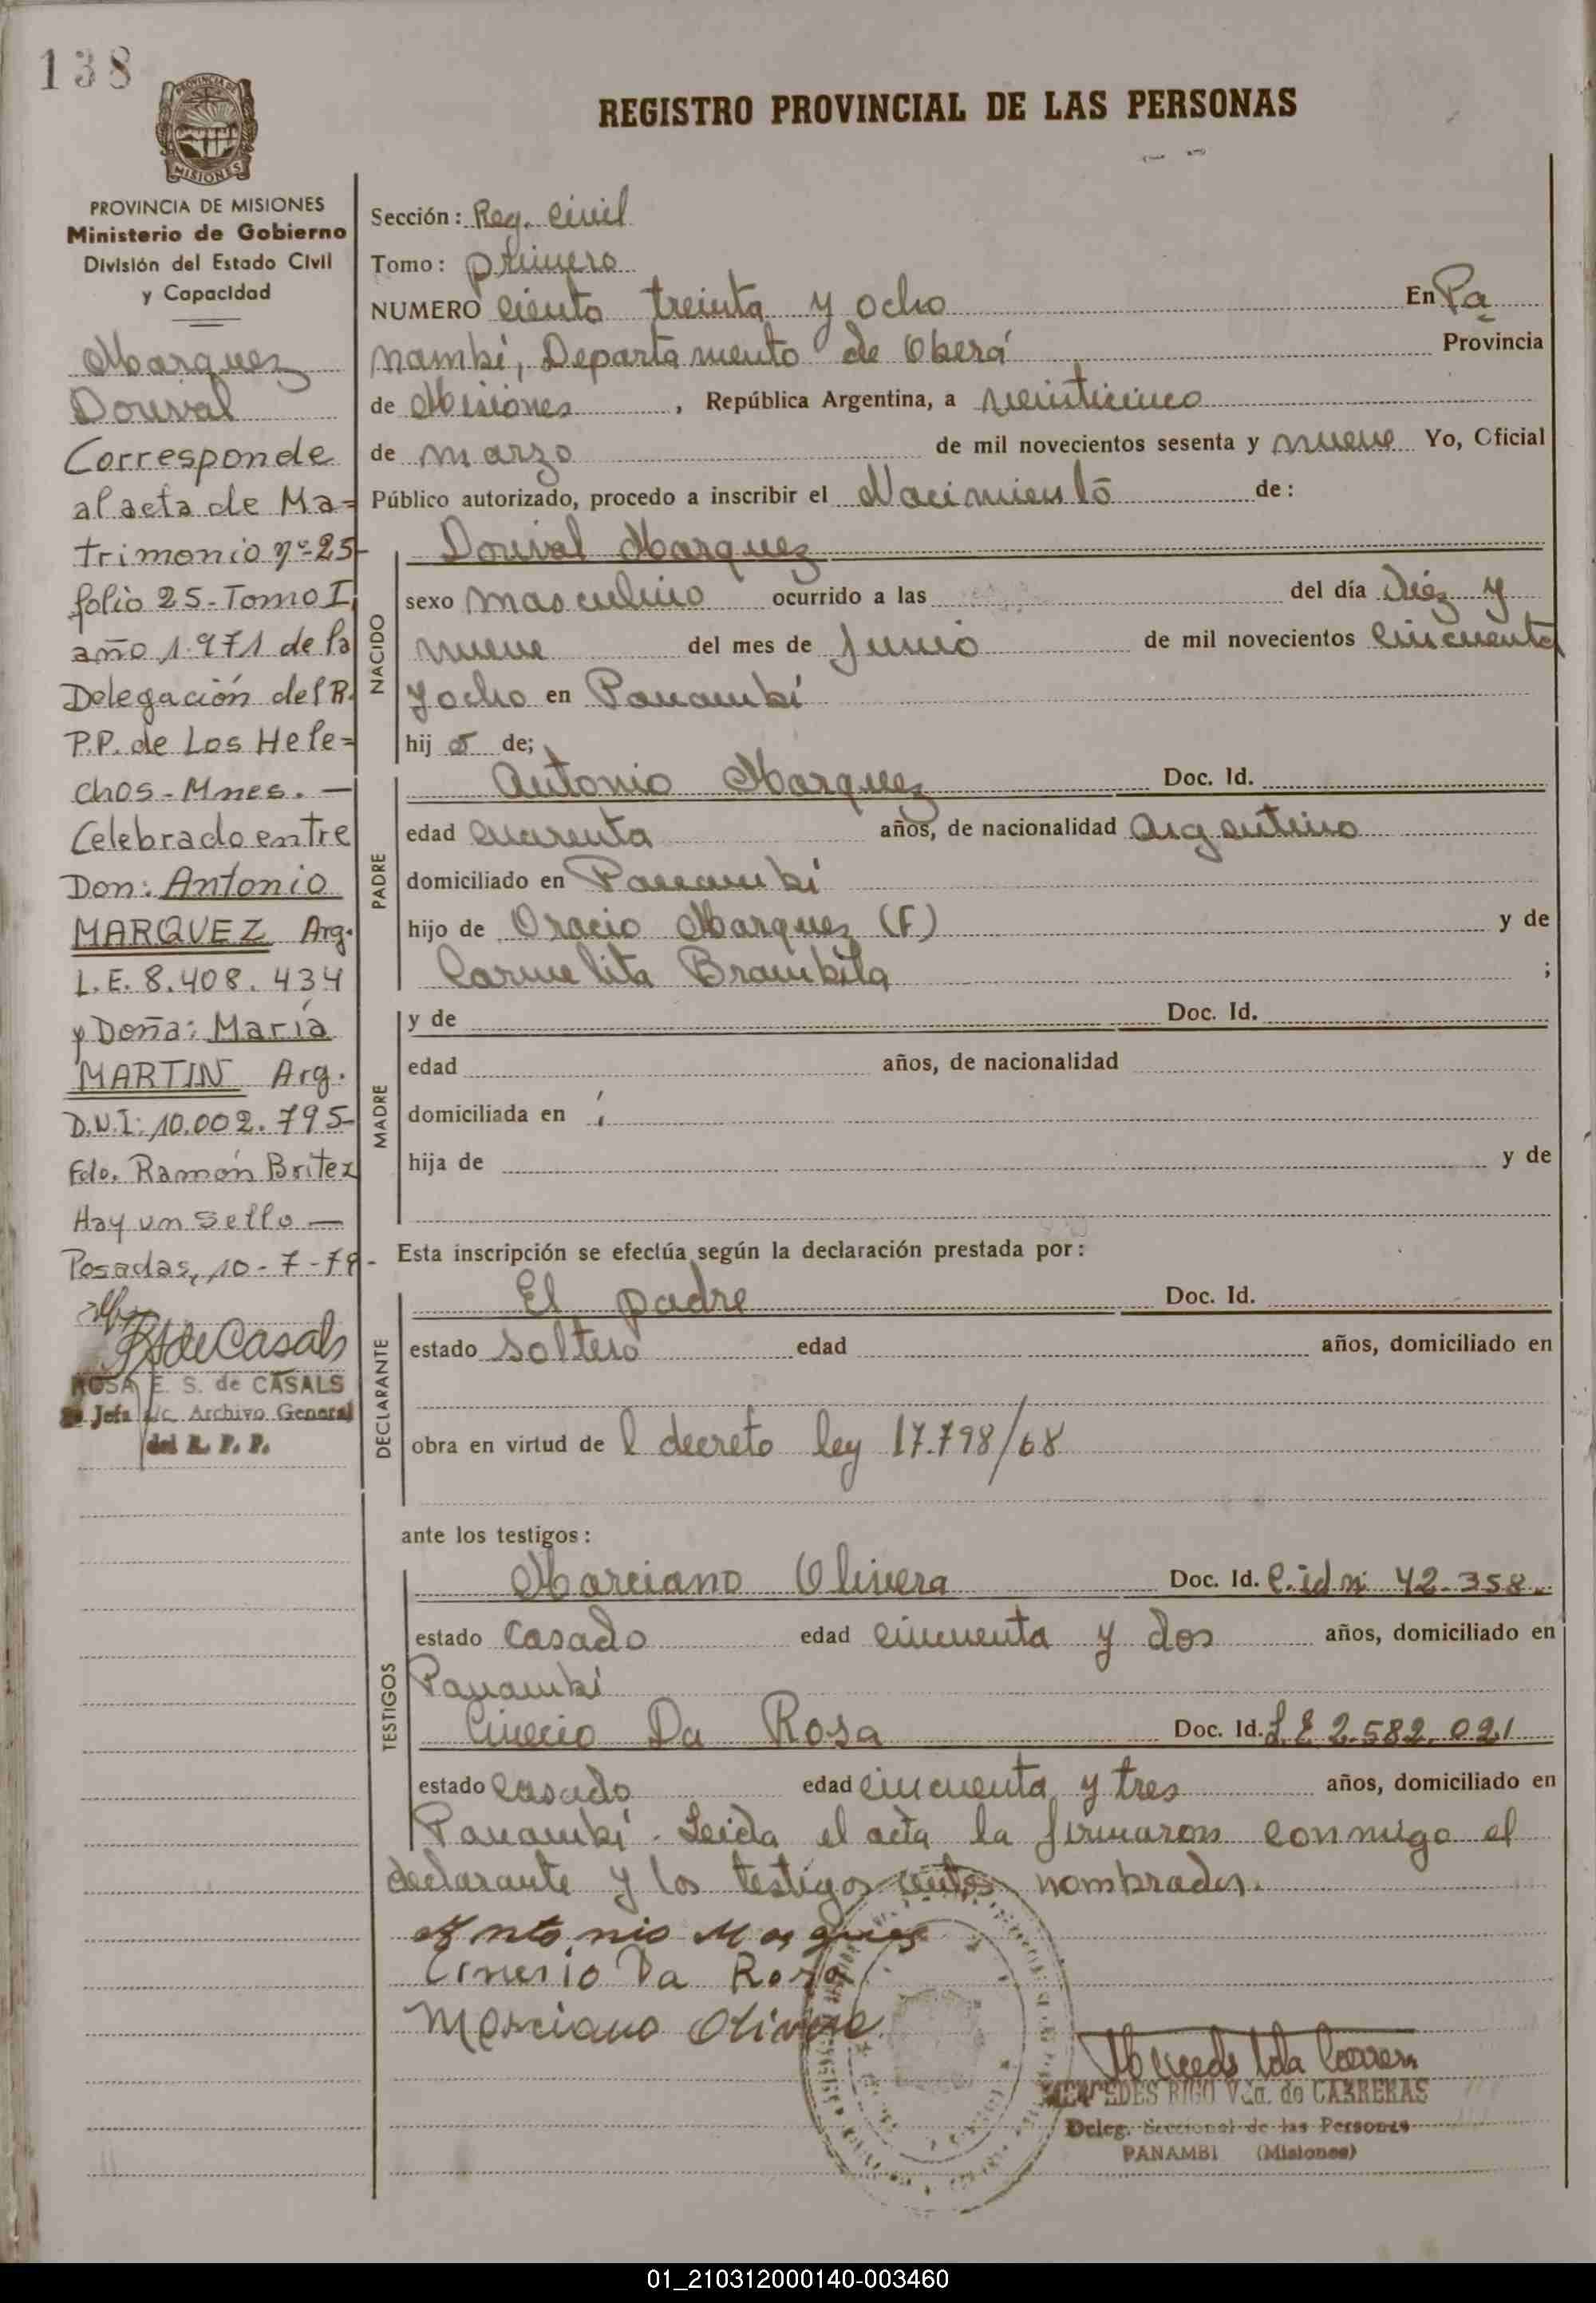 138
PROVINCIA DE MISIONES
Ministerio de Gobierno
División del Estado Civil
y Capacidad
Marquez
Dorival
Corresponde
al acta de Ma=
trimonio nº 25-
folio 25-Tomo I
año 1.971 de la
Delegación del R.
P.P. de Los Hele=
chos-Mnes. —
Celebrado entre
Don: Antonio
MARQUEZ Arg.
L.E. 8.408.434
y Doña: María
MARTIN Arg.
D.N.I: 10.002.795-
Fdo. Ramón Britez
Hay un sello —
Posadas, 10-7-79-
RSdeCasals
ROSA E. S. de CASALS
Jefa a/c. Archivo General
del R. P. P.
REGISTRO PROVINCIAL DE LAS PERSONAS
Sección: Reg. Civil
Tomo: primero
NUMERO ciento treinta y ocho En Pa
nambí, Departamento de Oberá Provincia
de Misiones, República Argentina, a veinticinco
de marzo de mil novecientos sesenta y nueve Yo, Oficial
Público autorizado, procedo a inscribir el Nacimiento de:
NACIDO
Dorival Marquez
sexo masculino ocurrido a las del día diez y
nueve del mes de Junio de mil novecientos cincuenta
y ocho en Panambí
hijo de;
PADRE
Antonio Marquez Doc. Id.
edad cuarenta años, de nacionalidad Argentino
domiciliado en Panambí
hijo de Oracio Marquez (F) y de
Carmelita Brambila ;
MADRE
y de Doc. Id.
edad años, de nacionalidad
domiciliada en
hija de y de
Esta inscripción se efectúa según la declaración prestada por:
DECLARANTE
El padre Doc. Id.
estado soltero edad años, domiciliado en
obra en virtud de l decreto ley 17.798/68
ante los testigos:
TESTIGOS
Marciano Olivera Doc. Id. C.id nº 42.358.
estado casado edad cincuenta y dos años, domiciliado en
Panambí
Cinecio Da Rosa Doc. Id. L.E 2.582.021
estado casado edad cincuenta y tres años, domiciliado en
Panambí. Leida el acta la firmaron conmigo el
declarante y los testigos antes nombrados.
Antonio Marques
Cinesio Da Rosa
Marciano Olivera
MERCEDES RIGO Vda. de CARRERAS
Deleg. Seccional de las Personas
PANAMBI (Misiones)
01_210312000140-003460